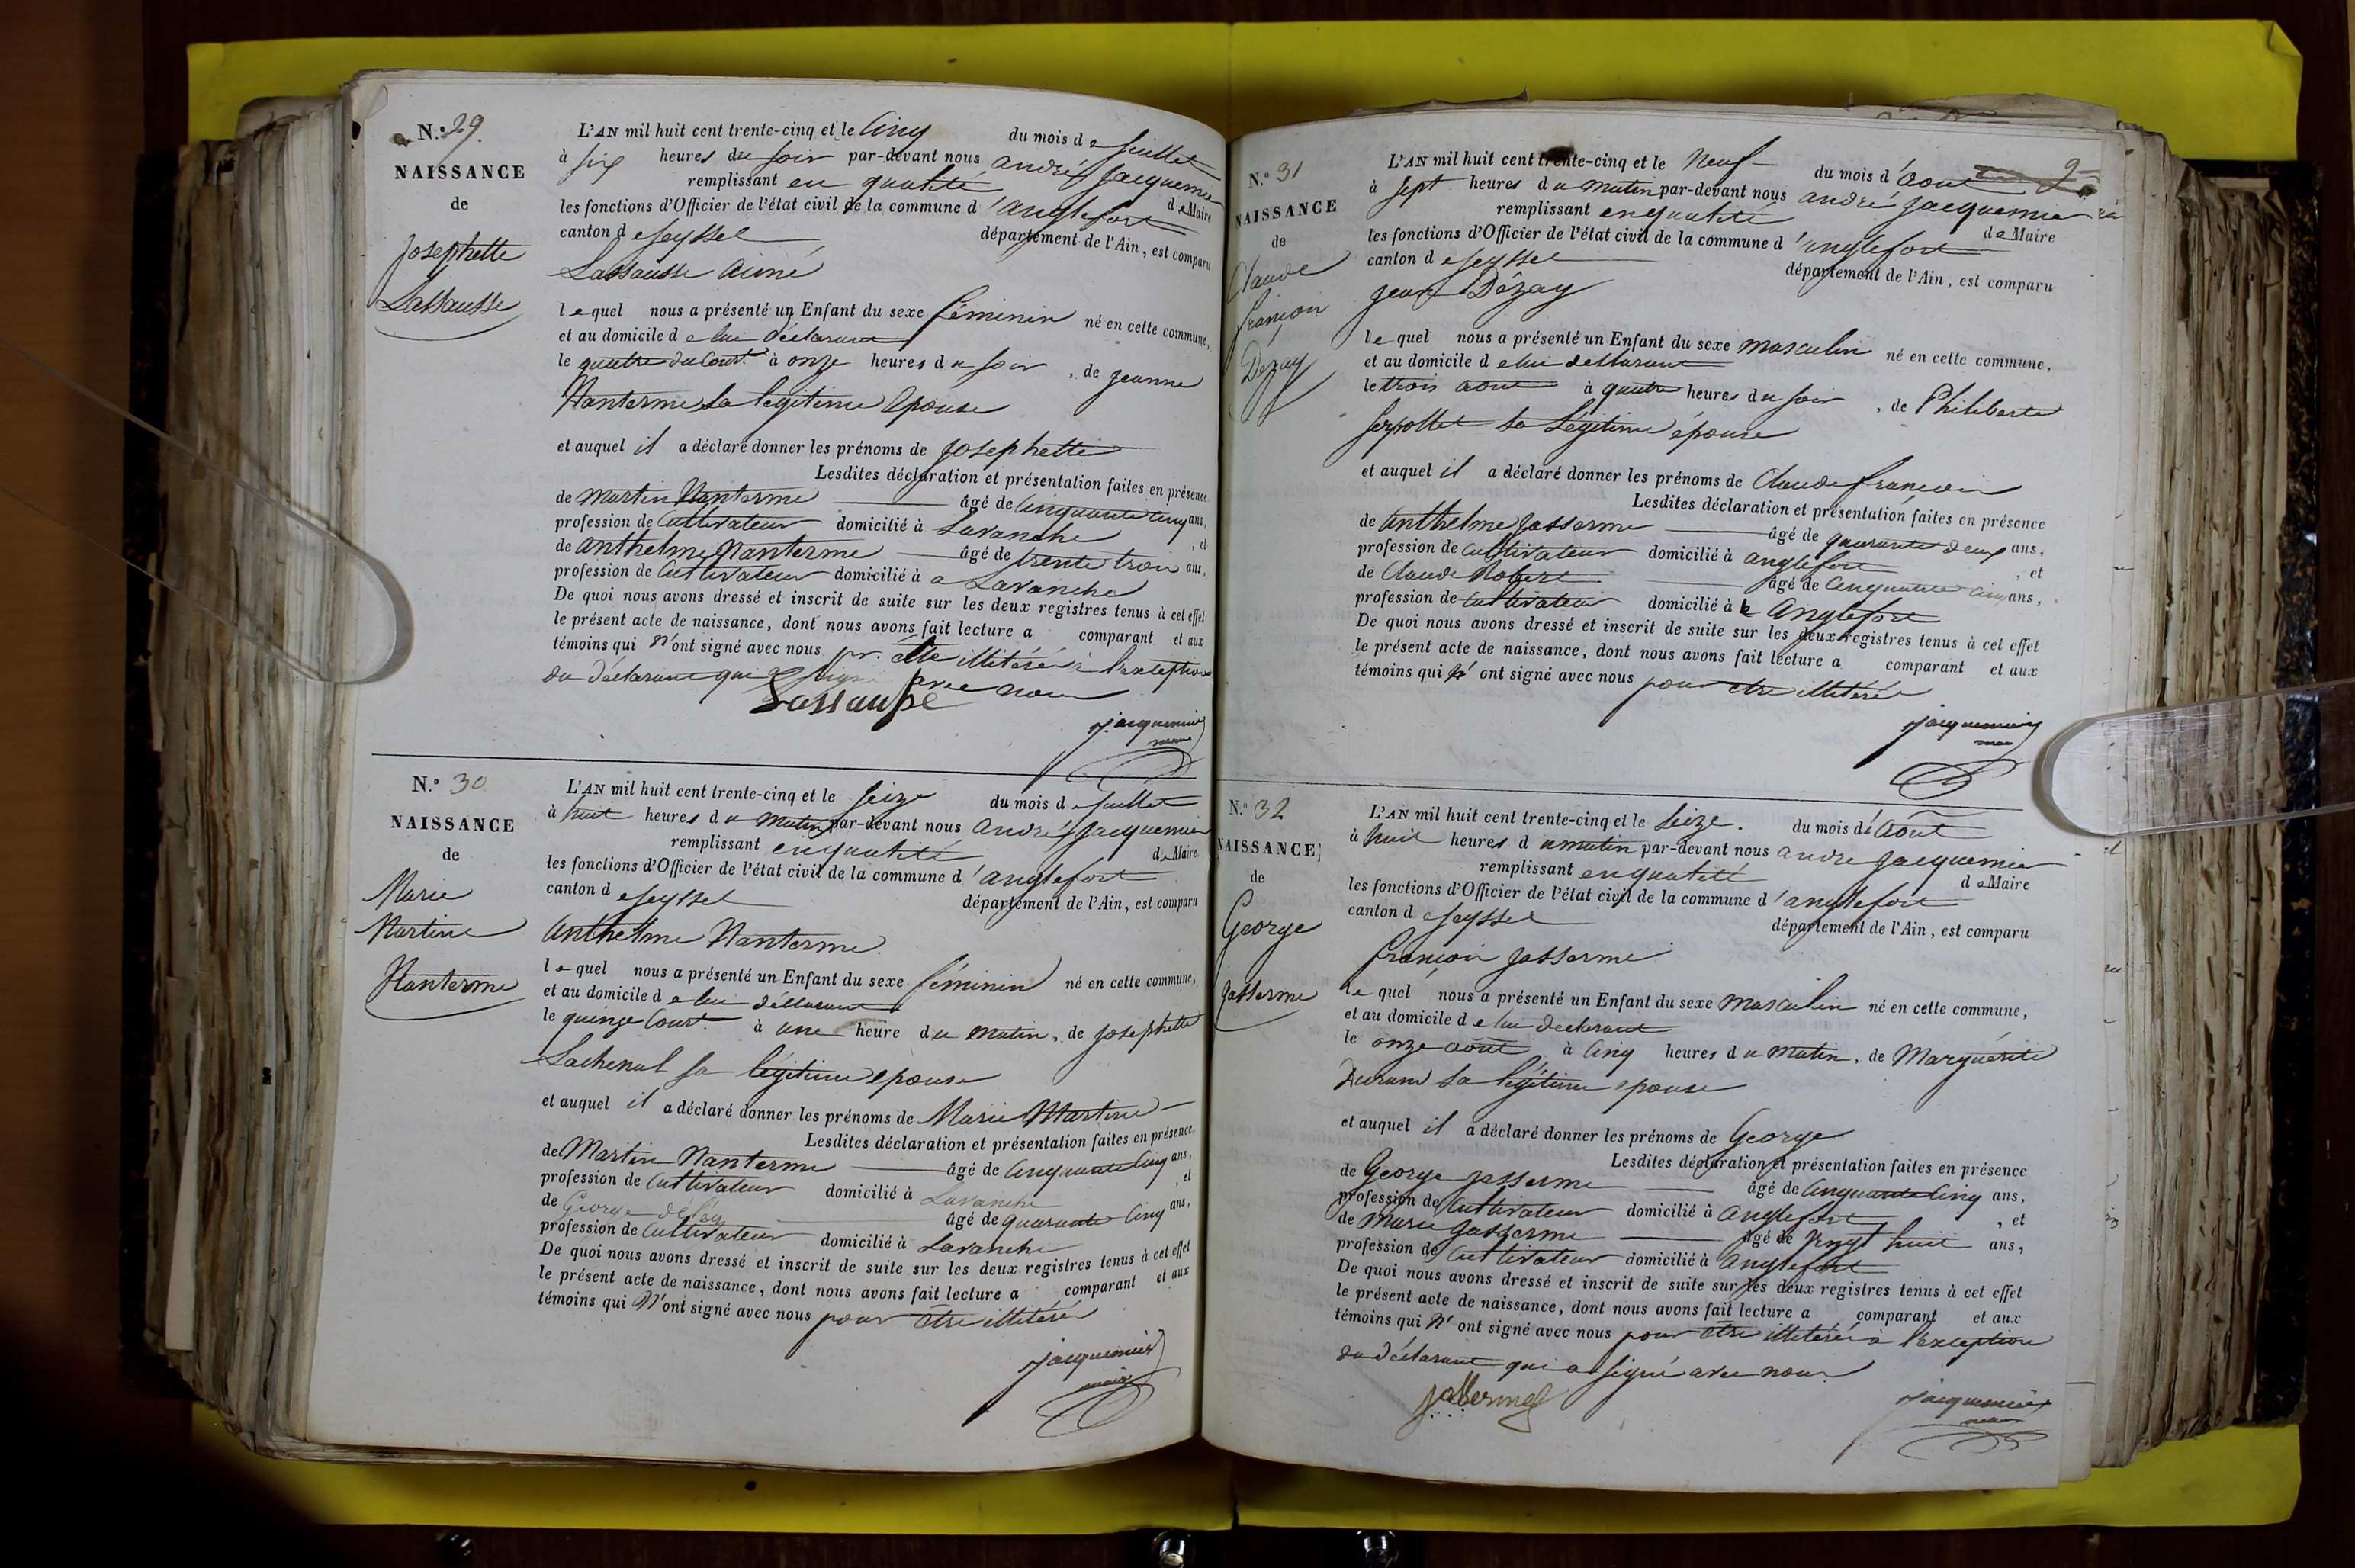 N.º 29.
NAISSANCE
de
Josephette
Lassausse
L'AN mil huit cent trente-cinq et le Cinq du mois de Juillet
à six heures du soir par-devant nous andré Jacquemier
remplissant en qualité de Maire
les fonctions d'Officier de l'état civil de la commune d'anglefort
canton de Seyssel département de l'Ain, est comparu
Lassausse Aimé
lequel nous a présenté un Enfant du sexe féminin né en cette commune,
et au domicile de lui déclarant
le quatre du Cour.t à onze heures du soir, de jeanne
Nanterme Sa légitime Epouse
et auquel il a déclaré donner les prénoms de Josephette
Lesdites déclaration et présentation faites en présence
de Martin Nanterme âgé de Cinquante Cinq ans,
profession de Cultivateur domicilié à Lavanche, et
de anthelme Nanterme âgé de trente trois ans,
profession de Cultivateur domicilié à a Lavanche
De quoi nous avons dressé et inscrit de suite sur les deux registres tenus à cet effet
le présent acte de naissance, dont nous avons fait lecture a comparant et aux
témoins qui N'ont signé avec nous pr. etre illitéré à l'exception
du déclarant qui a signé avec nous
Lassausse
Jacquemier
maire
N.º 30
NAISSANCE
de
Marie
Martine
Nanterme
L'AN mil huit cent trente-cinq et le Seize du mois de Juillet
à huit heures du matin par-devant nous André Jacquemier
remplissant en qualité de Maire
les fonctions d'Officier de l'état civil de la commune d'anglefort
canton de Seyssel département de l'Ain, est comparu
Anthelme Nanterme.
lequel nous a présenté un Enfant du sexe féminin né en cette commune,
et au domicile de lui déclarant
le quinze Cour.t à une heure du matin, de Josephette
Lachenal sa légitime epouse
et auquel il a déclaré donner les prénoms de Marie Martine
Lesdites déclaration et présentation faites en présence
de Martin Nanterme âgé de Cinquante Cinq ans,
profession de Cultivateur domicilié à Lavanche, et
de George âgé de quarante Cinq ans,
profession de Cultivateur domicilié à Lavanche
De quoi nous avons dressé et inscrit de suite sur les deux registres tenus à cet effet
le présent acte de naissance, dont nous avons fait lecture a comparant et aux
témoins qui N'ont signé avec nous pour être illitéré
Jacquemier
maire
2
N.º 31
NAISSANCE
de
Claude
françois
Dézay
L'AN mil huit cent trente-cinq et le Neuf du mois d'aout
à sept heures du matin par-devant nous andré Jacquemier
remplissant en qualité de Maire
les fonctions d'Officier de l'état civil de la commune d'anglefort
canton de Seyssel département de l'Ain, est comparu
jean Dézay
lequel nous a présenté un Enfant du sexe masculin né en cette commune,
et au domicile de lui déclarant
le trois aout à quatre heures du soir, de Philiberte
Serpollet sa Légitime épouse
et auquel il a déclaré donner les prénoms de Claude françois
Lesdites déclaration et présentation faites en présence
de anthelme Jasserme âgé de quarante deux ans,
profession de Cultivateur domicilié à anglefort, et
de Claude Robert âgé de Cinquante Cinq ans,
profession de Cultivateur domicilié à Anglefort
De quoi nous avons dressé et inscrit de suite sur les deux registres tenus à cet effet
le présent acte de naissance, dont nous avons fait lecture a comparant et aux
témoins qui N'ont signé avec nous pour etre illitéré
Jacquemier
maire
N.º 32
NAISSANCE
de
George
Jasserme
L'AN mil huit cent trente-cinq et le Seize. du mois de Août
à huit heures du matin par-devant nous andré Jacquemier
remplissant en qualité de Maire
les fonctions d'Officier de l'état civil de la commune d'anglefort
canton de Seyssel département de l'Ain, est comparu
françois Jasserme
lequel nous a présenté un Enfant du sexe masculin né en cette commune,
et au domicile de lui déclarant
le onze août à Cinq heures du matin, de Marguérite
Durand sa légitime epouse
et auquel il a déclaré donner les prénoms de George
Lesdites déclaration et présentation faites en présence
de George Jasserme âgé de Cinquante Cinq ans,
profession de Cultivateur domicilié à Anglefort, et
de Marie Jasserme âgé de Vingt huit ans,
profession de Cultivateur domicilié à Anglefort
De quoi nous avons dressé et inscrit de suite sur les deux registres tenus à cet effet
le présent acte de naissance, dont nous avons fait lecture a comparant et aux
témoins qui N'ont signé avec nous pour être illitéré à l'exception
du déclarant qui a signé avec nous
Jasserme
Jacquemier
maire